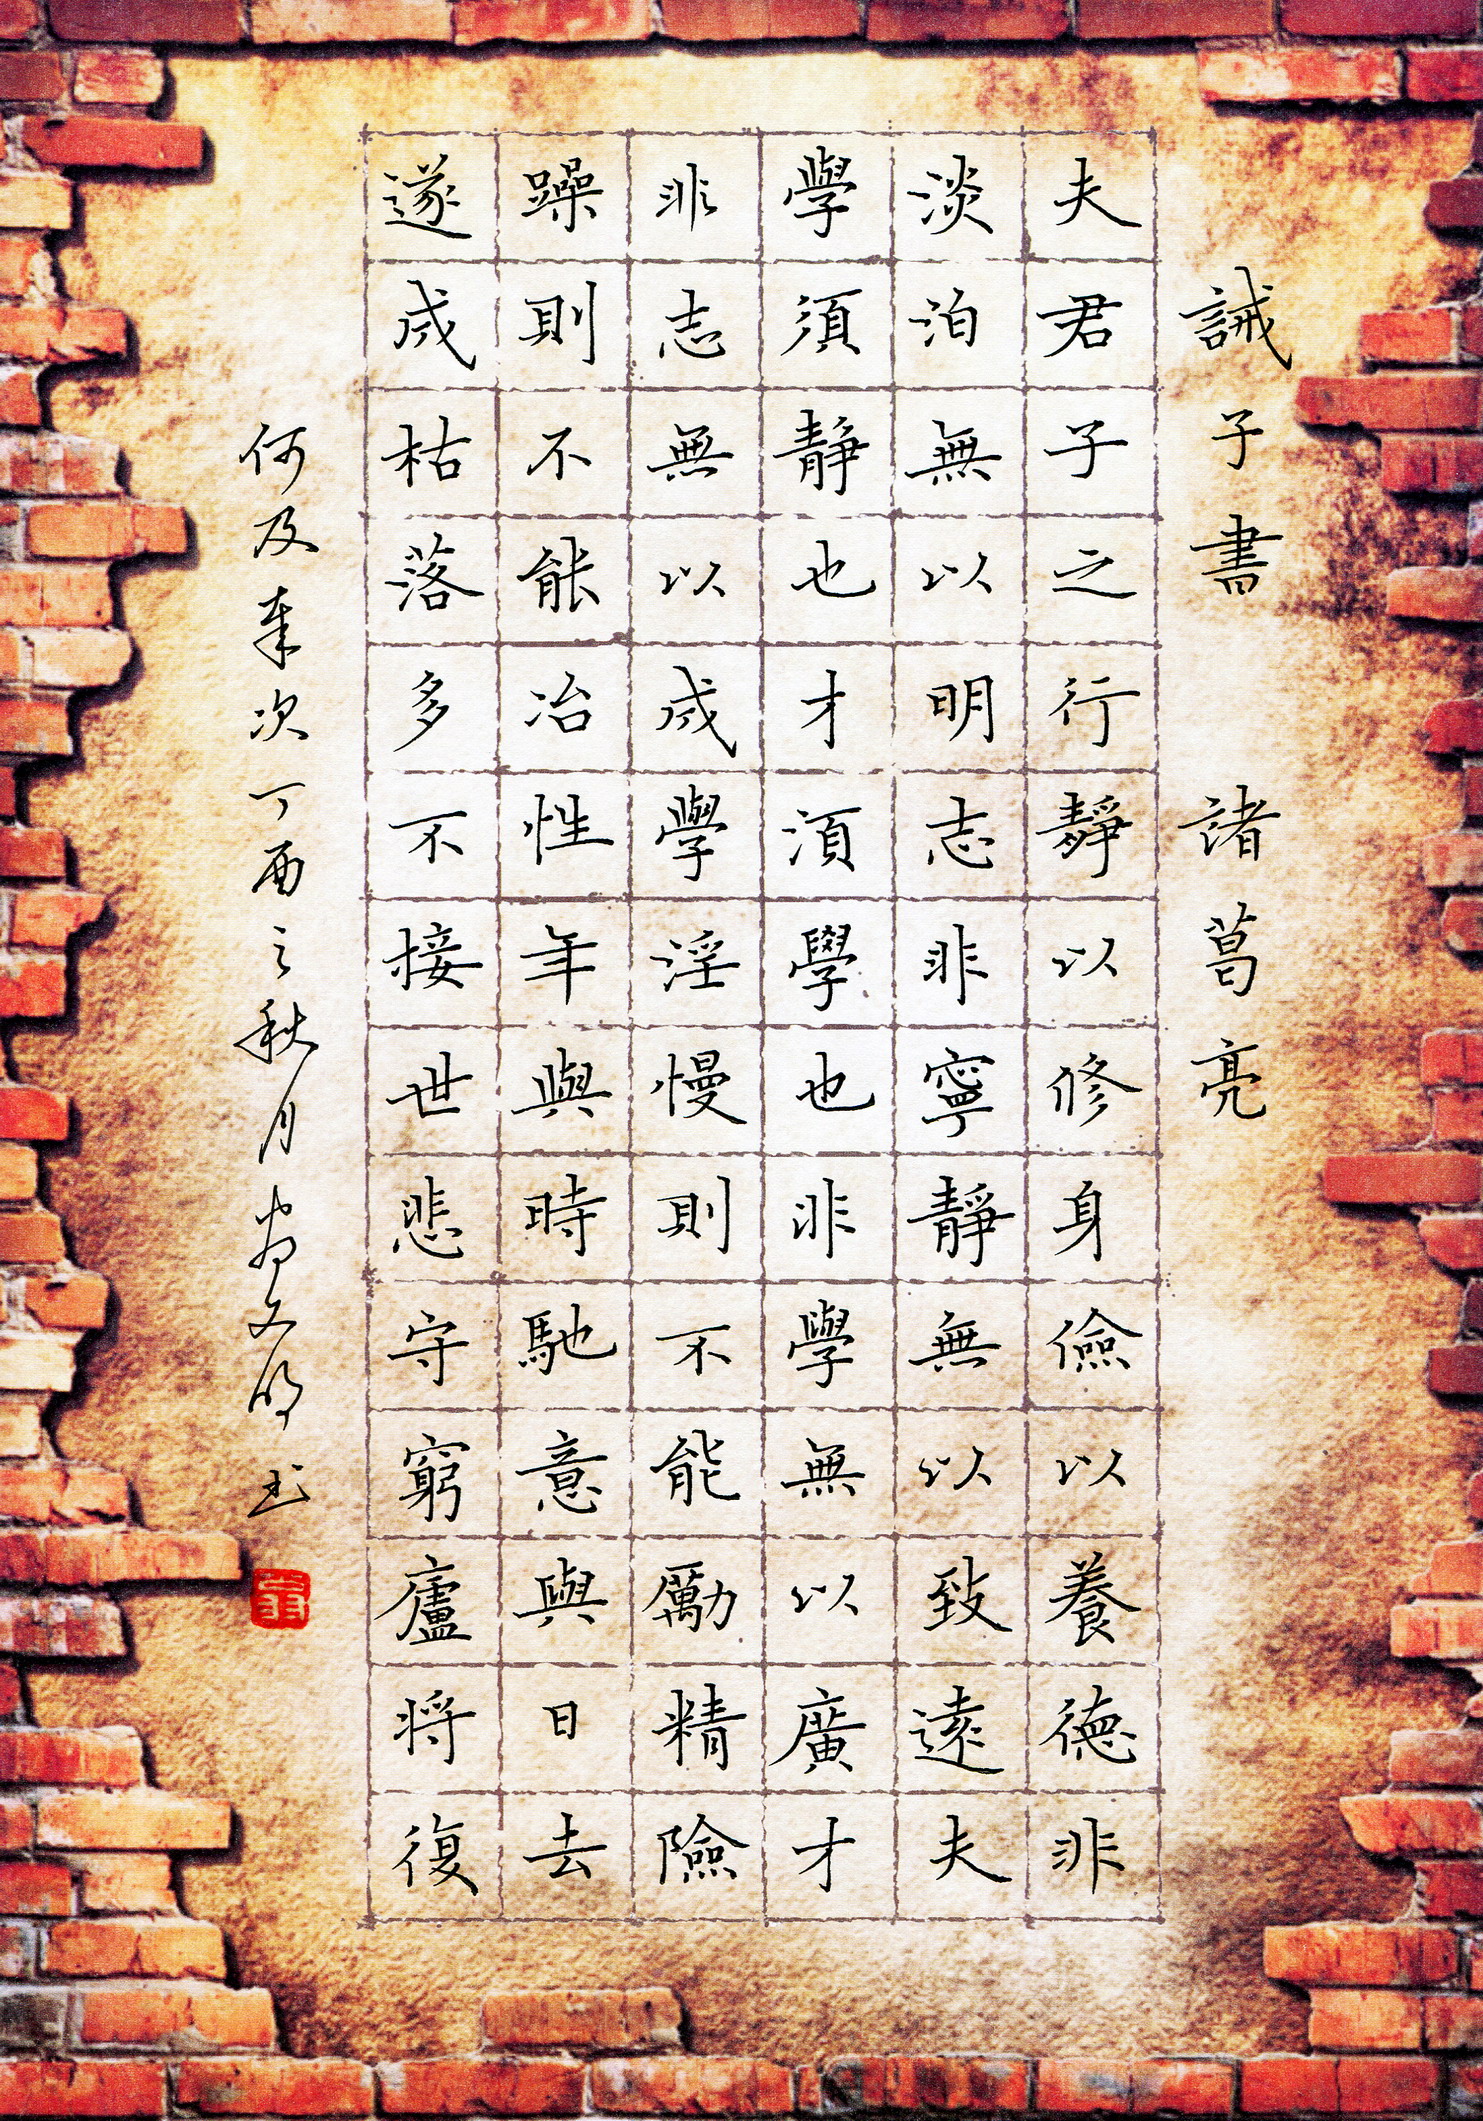 誡子書 諸葛亮
夫君子之行靜以修身儉以養德非
淡泊無以明志非寧靜無以致遠夫
學須靜也才須學也非學無以廣才
非志無以成學淫慢則不能勵精險
躁則不能冶性年與時馳意與日去
遂成枯落多不接世悲守窮廬将復
何及 歲次丁酉之秋月 文明书